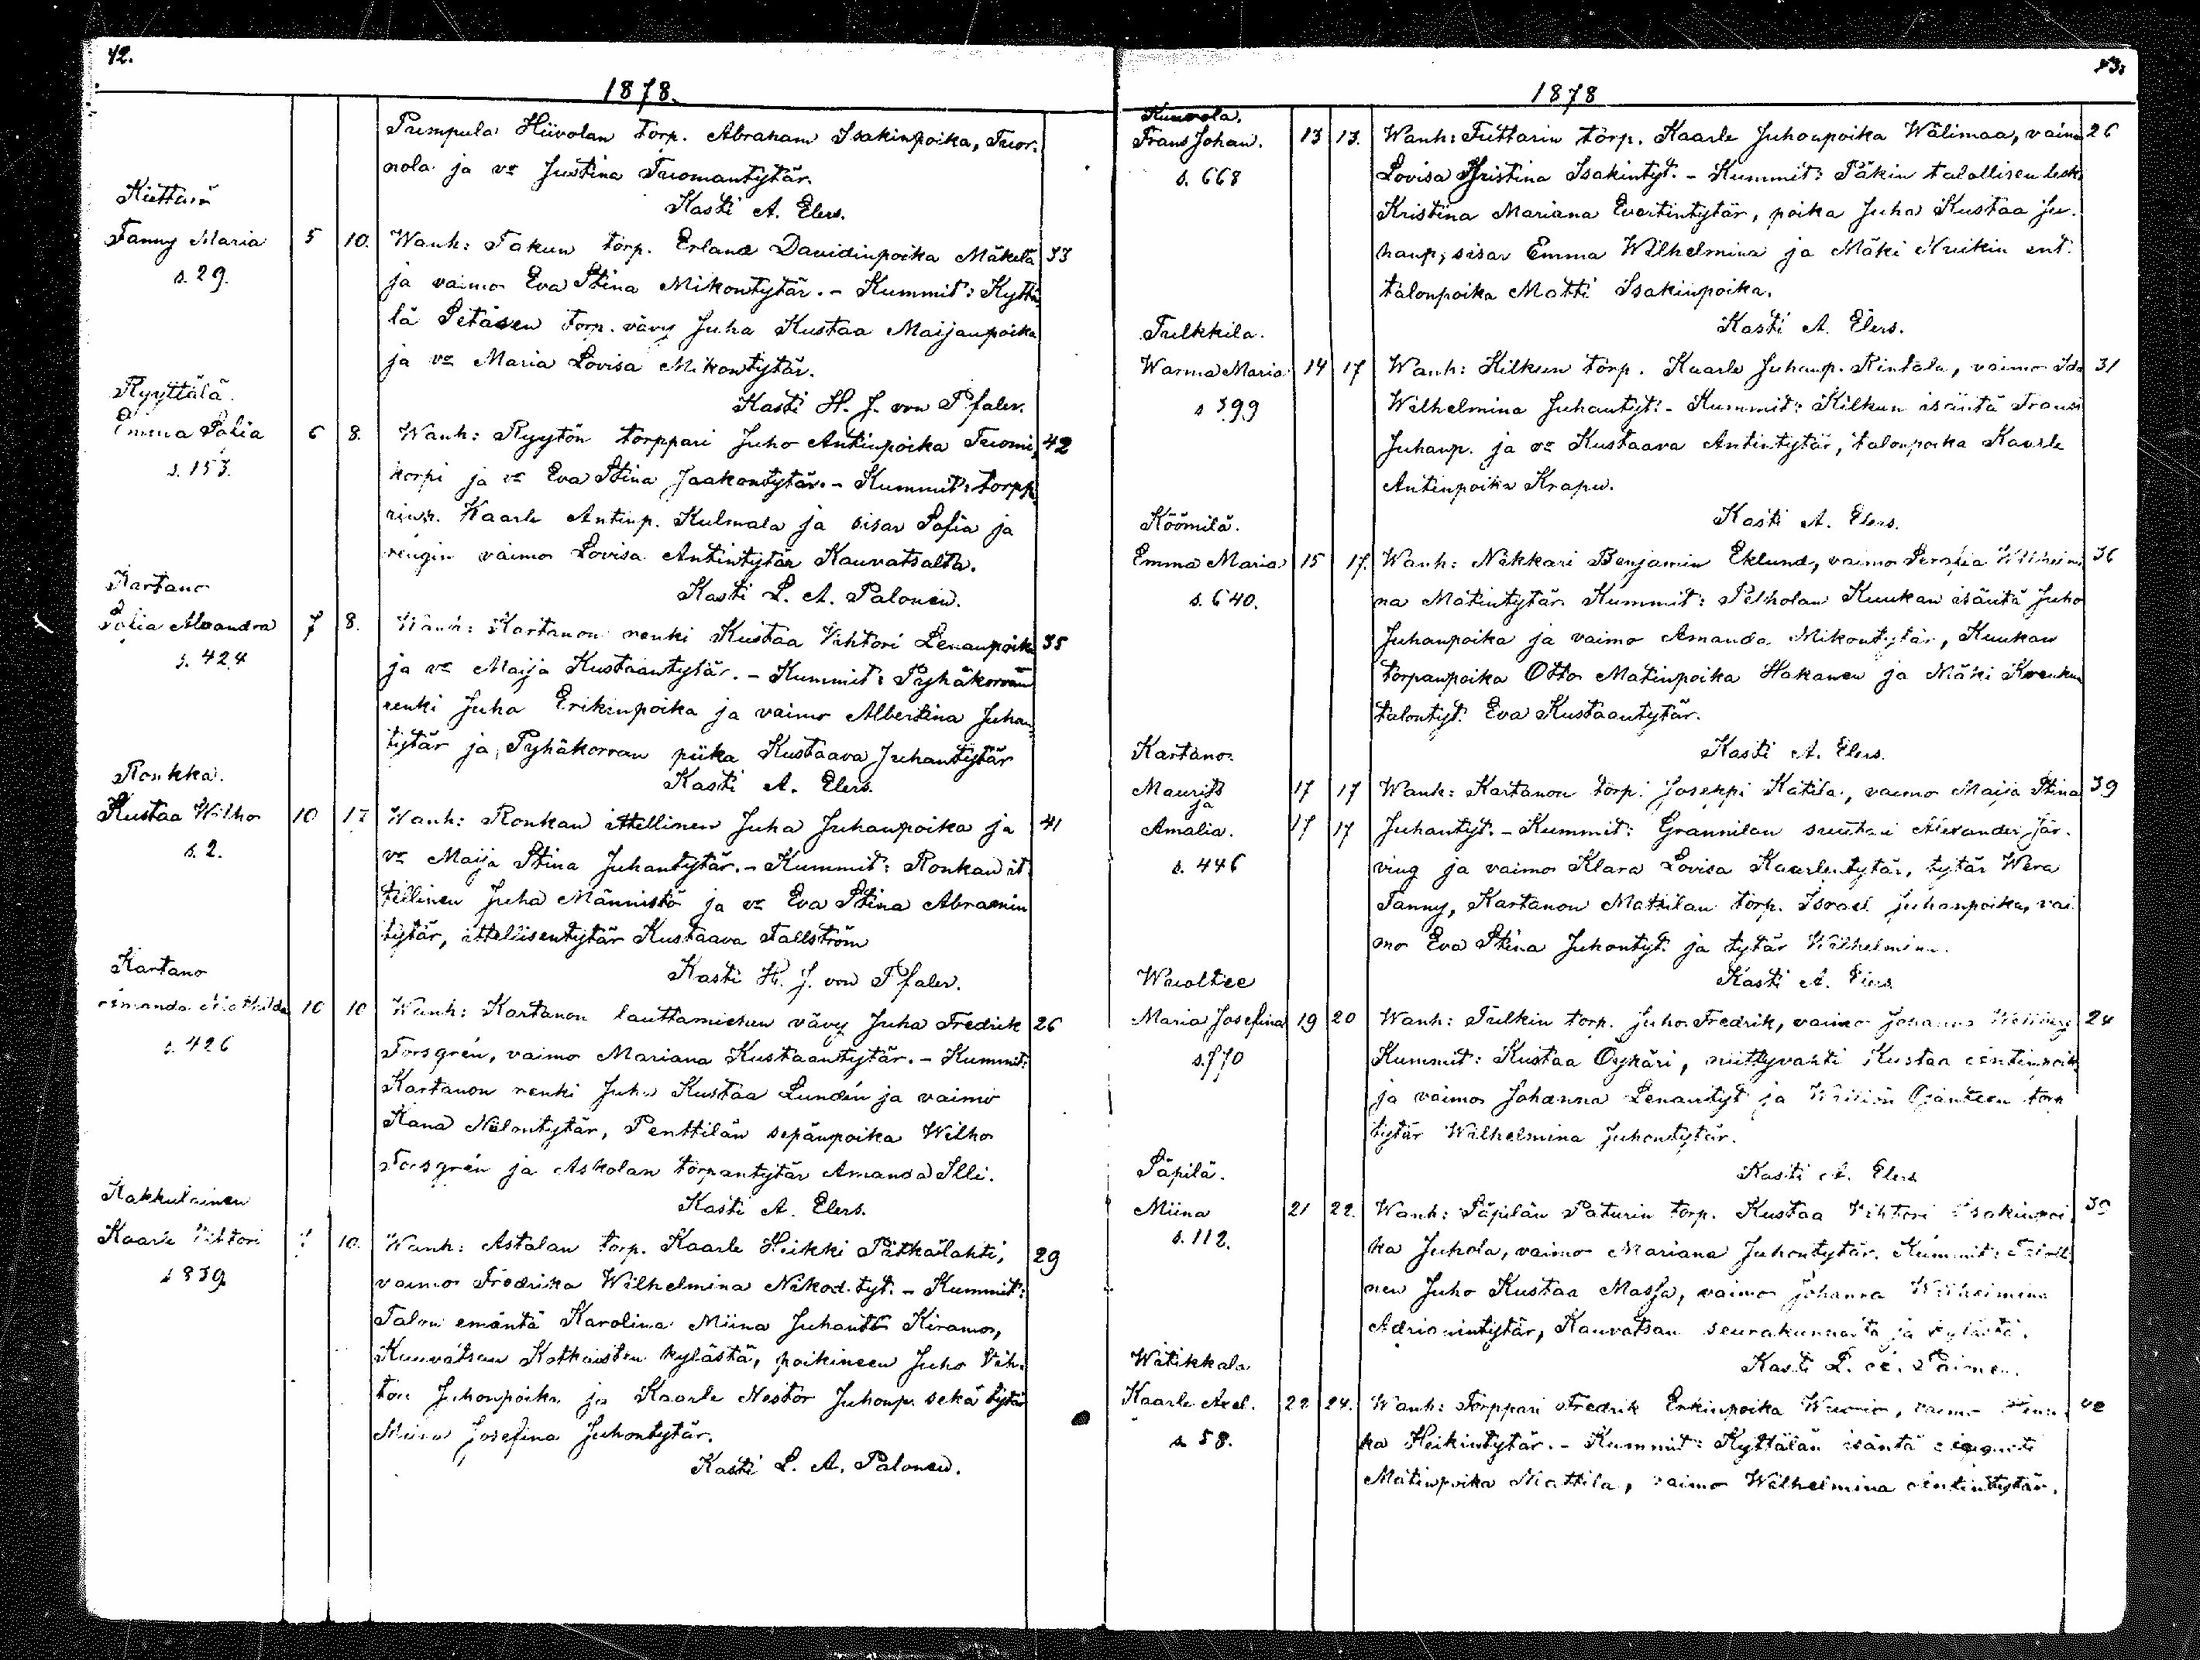 42.
1878.
Pumpula Hiivolan torp. Abraham Isakinpoika, Tuor-
nola ja vo Justina Tuomantytär.
Kasti A. Elers.
Fanny Maria 5 10. Wanh: Takun torp. Erland Davidinpoika Mäkelä 33
s. 29. ja vaimo Eva Stina Mikontytär. - Kummit: Kyttä
lä Setäsen torp. vävy Juha Kustaa Maijanpoika
ja vo Maria Lovisa Mikontytär.
Ryyttälä. Kasti H. J. von Pfaler.
Emma Sofia 6 8. Wanh: Ryytön torppari Juho Antinpoika Tuomi 42
s. 153. korpi ja vo Eva Stina Jaakontytär. - Kummit: torpp
Kaarle Antinp. Kulmala ja sisar Sofia ja
rengin vaimo Lovisa Antintytär Kauvatsalta.
Kartano Kasti L. A. Palonen.
Sofia Alexandra 7 8. Wanh: Kartanon renki Kustaa Vihtori Lenanpoika 35
s. 424 ja vo Maija Kustaantytär. - Kummit: Pyhäkorvan
renki Juha Erikinpoika ja vaimo Albertina Juhan
tytär ja Pyhäkorvan piika Kustaava Juhantytär
Ronkka. Kasti A. Elers.
Kustaa Wilho 10 17 Wanh: Ronkan ittellinen Juha Juhanpoika ja 41
s. 2. vo Maija Stina Juhantytär. - Kummit: Ronkan it
tellinen Juha Männistö ja vo Eva Stina Abramin
tytär, ittellisentytär Kustaava Fallström
Kartano Kasti H. J. von Pfaler.
Amanda Mathilda 10 10 Wanh: Kartanon lauttamiehen vävy Juha Fredrik 26
s. 426 Forsgrén, vaimo Mariana Kustaantytär. - Kummit:
Kartanon renki Juho Kustaa Lundén ja vaimo
Penttilän sepänpoika Wilho
Forsgrén ja Askolan torpantytär Amanda Illi.
Kakkulainen Kasti A. Elers.
Kaarle Vihtori 10. Wanh: Astalan torp. Kaarle Heikki Pitkälahti, 29
s 839 vaimo Fredrika Wilhelmina Nikod. tyt. - Kummit:
Talon emäntä Karolina Miina Juhantt Kiramo,
Kauvatsan kylästä, poikineen Juho Vih-
tori Juhonpoika ja Kaarle Nestor Juhonp. sekä tytär
Miina Josefina Juhontytär.
Kasti L. A. Palonen.
1878
Kuurola.
Frans Johan. 13 13. Wanh: Tuttarin torp. Kaarle Juhonpoika Wälimaa, vaimo 26
s. 668 Lovisa Kristina Isakintyt. - Kummit: Päkin talollisen leski
Kristina Mariana Evertintytär, poika Juha Kustaa Ju-
hanp, sisar Emma Wilhelmina ja Mäki ent.
talonpoika Matti Isakinpoika.
Tulkkila. Kasti A. Elers.
Wanna Maria 14 17 Wanh: Kilkun torp. Kaarle Juhanp. Rintala, vaimo Ida 31
s 399 Wilhelmina Juhantyt: - Kummit: Kilkun isäntä Frans
Juhanp. ja vo Kustaava Antintytär, talonpoika Kaarle
Antinpoika Krapu.
Köömilä. Kasti A. Elers.
Emma Maria 15 17. Wanh: Nikkari Benjamin Eklund, vaimo Serafia Wilhelmi 36
s. 640. na Matintytär. Kummit: Peltholan Kuukan isäntä Juho
Juhanpoika ja vaimo Amanda Mikontytär, Kuukan
torpanpoika Otto Matinpoika Hakanen ja Mäki
talontyt. Eva Kustaantytär.
Kartano. Kasti A. Elers.
Maurits 17 17 Wanh: Kartanon torp. Joseppi Katila, vaimo Maija Stina 39
ja
Amalia. 17 17 Juhantyt. - Kummit: Grannilan suutari Alexander Jär-
s. 446 ving ja vaimo Klara Lovisa Kaarlentytär, tytär Wera
Fanny, Kartanon Mattilan torp. Israel Juhanpoika, vai
mo Eva Stina Juhontyt. ja tytär Wilhelmina.
Wuoltee Kasti A. Elers
Maria Josefina 19 20 Wanh: Tulkin torp. Juho Fredrik, vaimo Johanna 24
s. 770 Kummit: Kustaa Oykäri, niittyvahti Kustaa Antinpoik
ja vaimo Johanna Lenantyt ja Ojanteen torp
tytär Wilhelmina Juhontytär.
Säpilä. Kasti A. Elers
Miina 21 22. Wanh: Säpilän Paturin torp. Kustaa Vihtori Isakinpoi
s. 112. ka Juhola, vaimo Mariana Juhontytär. Kummit:
nen Juho Kustaa Massa, vaimo Johanna Wilhelmina
Adrianintytär, Kauvatsan seurakunnasta ja kylästä.
Witikkala Kasti L. A. Palonen.
Kaarle Axel. 22 24. Wanh: Torppari Fredrik Erkinpoika Wuorio, vaimo
s. 58. ka Heikintytär. - Kummit: Kyttälän isäntä
Matinpoika Mattila, vaimo Wilhelmina Antintytär.